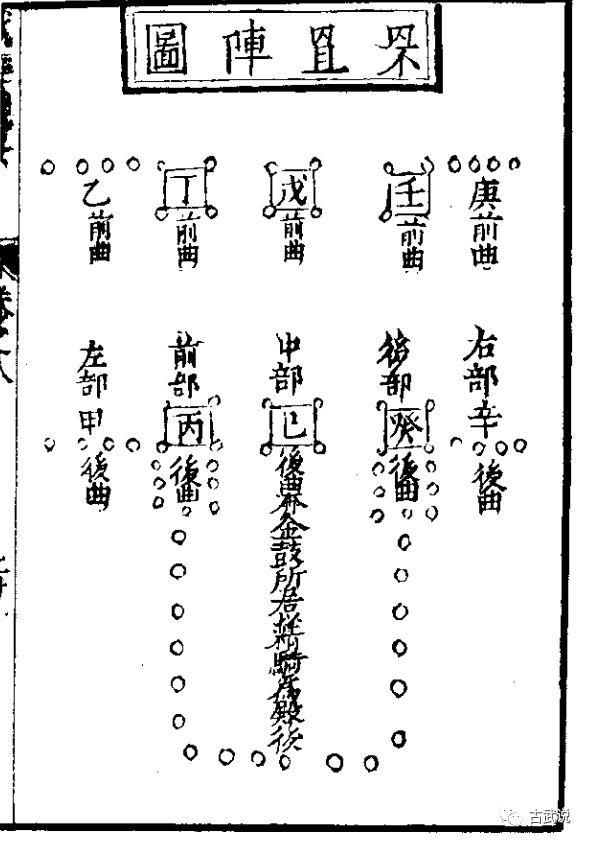 罘罝陣圖
庚前曲
壬前曲
戊前曲
丁前曲
乙前曲
右部辛後曲
後部癸後曲
中部己後曲金鼓所居精騎為殿後
前部丙後曲
左部甲後曲
卷之八
古武说